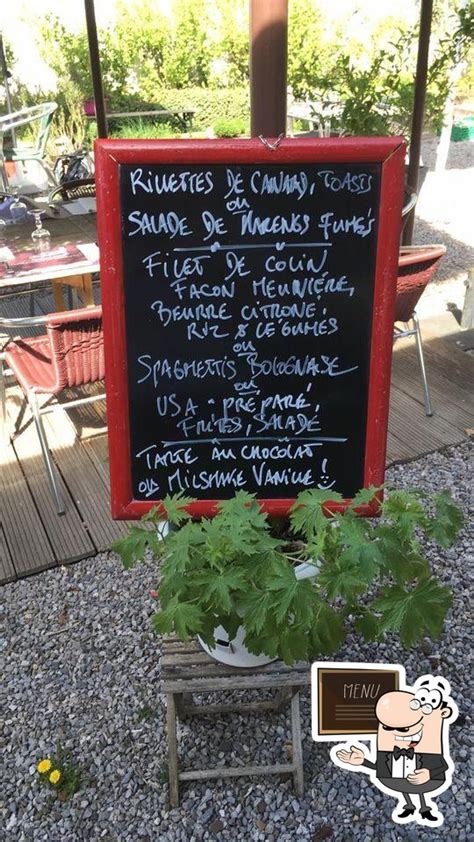 RILLETTES DE CANARD, TOASTS
OU
SALADE DE HARENGS FUMÉS
FILET DE COLIN
FAÇON MEUNIÈRE,
BEURRE CITRONÉ,
RIZ & LÉGUMES
OU
SPAGHETTIS BOLOGNAISE
OU
USA PRÉPARÉ,
FRITES, SALADE
TARTE AU CHOCOLAT
OU MILSHAKE VANILLE !
MENU